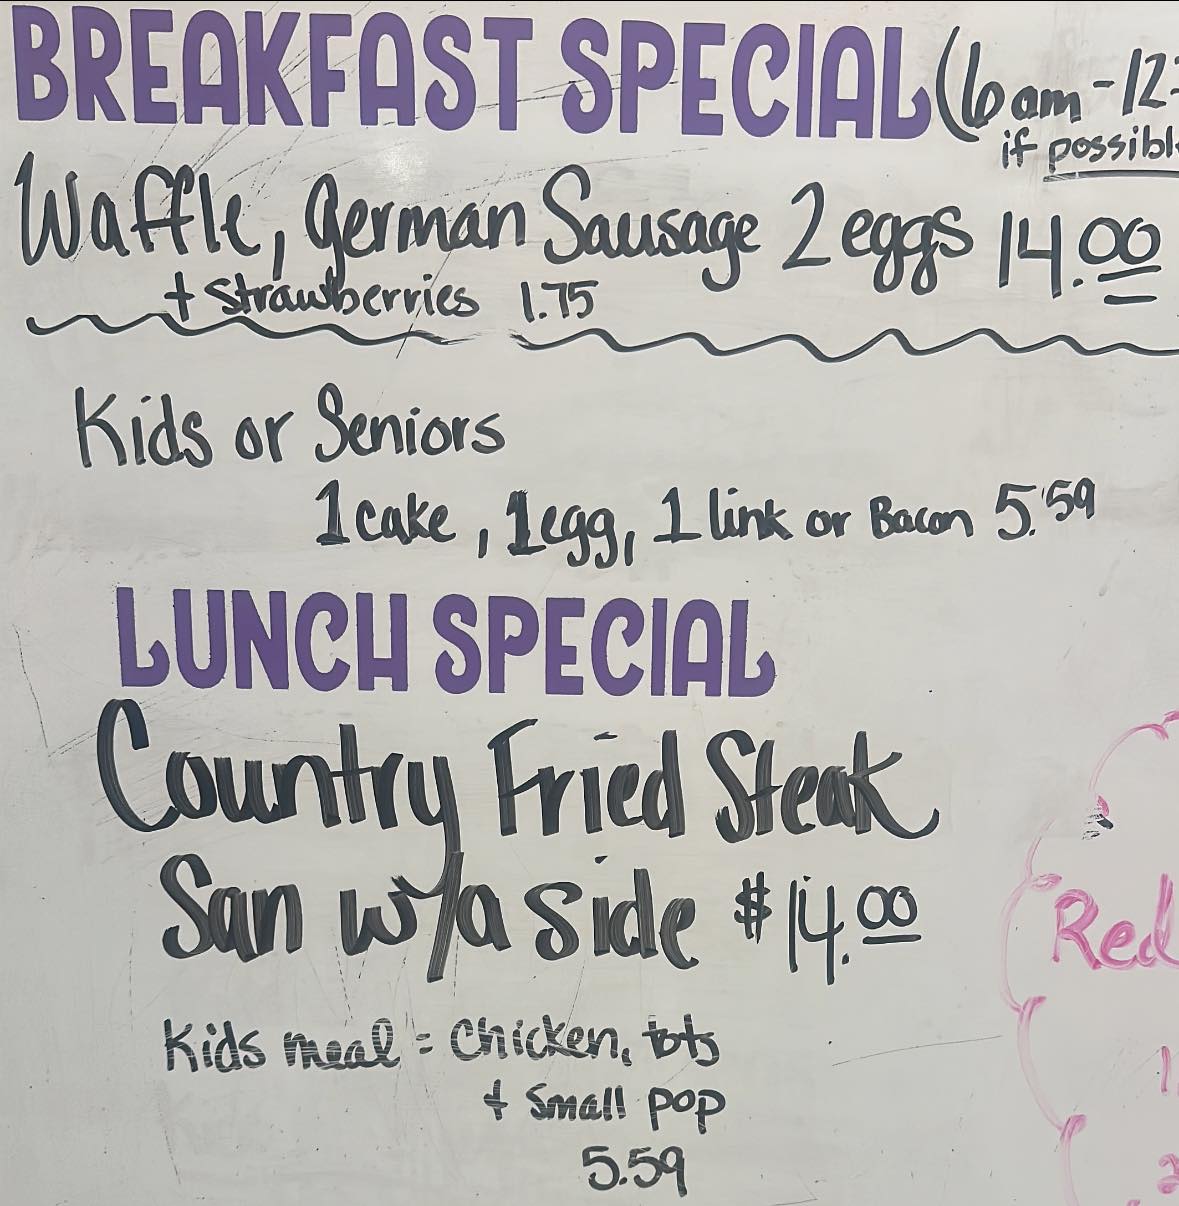 BREAKFAST SPECIAL (6am - 12
if possible
Waffle, German Sausage 2 eggs 14.00
+ Strawberries 1.75
Kids or Seniors
1 cake, 1 egg, 1 link or Bacon 5.59
LUNCH SPECIAL
Country Fried Steak
San w/a side $14.00
Kids meal = Chicken, tots
+ Small pop
5.59
Red